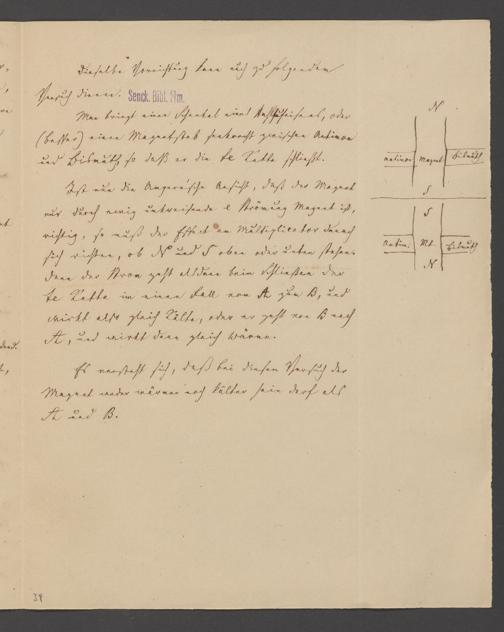 Dieselbe Vorrichtung kann auch zu folgendem
Versuch dienen.
Senck. Bibl. Ffm.
Man bringt einen Schenkel eines Hufeisens, oder
(besser) einen Magnetstab senkrecht zwischen Antimon
und Bismuth, so daß er die te Kette schließt.
Ist nun die Ampère'sche Ansicht, daß der Magnet
nur durch ewig umkreisende e Strömung Magnet ist,
richtig, so muß der Effect am Multiplicator danach
sich richten, ob N und S oben oder unten stehen.
denn der Strom geht alsdann beim Schließen der
te Kette in einem Fall von A zum B, und
wirkt also gleich Kälte, oder er geht von B nach
A, und wirkt dann gleich Wärme.
Es versteht sich, daß bei diesem Versuch der
Magnet weder wärmer noch kälter sein darf als
A und B.
N
Antimon Magnet Bismuth
S
S
Antim. Mt. Bismuth
N